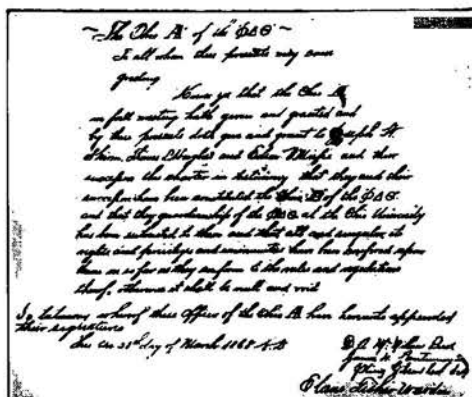 The Ohio A of the ΦΔΘ
To all whom these presents may come
greeting
Know ye that the Ohio A
in full meeting hath given and granted and
by these presents doth give and grant to Joseph H
James L Hughes and and their
successors the charter in testimony that they and their
successors have been constituted the Ohio B of the ΦΔΘ
and that the guardianship of the ΦΔΘ at the Ohio University
has been to them and that all and singular its
rights and privileges and immunities have been conferred upon
them in so far as they conform to the rules and regulations
thereof, otherwise it shall be null and void
In testimony whereof these officers of the Ohio A have hereunto appended
their signatures
this day of March 1868 A D